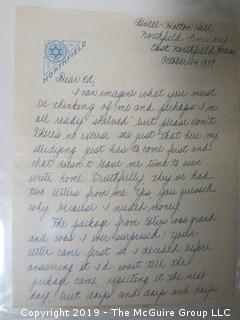 Revell-Holton Hall
Northfield Seminary
East Northfield, Mass
October 14, 1939
NORTHFIELD
Dear Ed,
I can imagine what you must
be thinking of me and perhaps I'm
all ready "shelved" but please don't
There's no excuse its just that here my
studying just has to come first and
that doesn't leave me time to even
write home. Truthfully they've had
two letters from me. Yes you guessed
why, because I needed money!
The package from was grand
and was I ever surprised! Your
letter came first so I decided before
answering it I'd wait till the
package came expecting it the next
day, but days and days and days
Copyright 2019 - The McGuire Group LLC